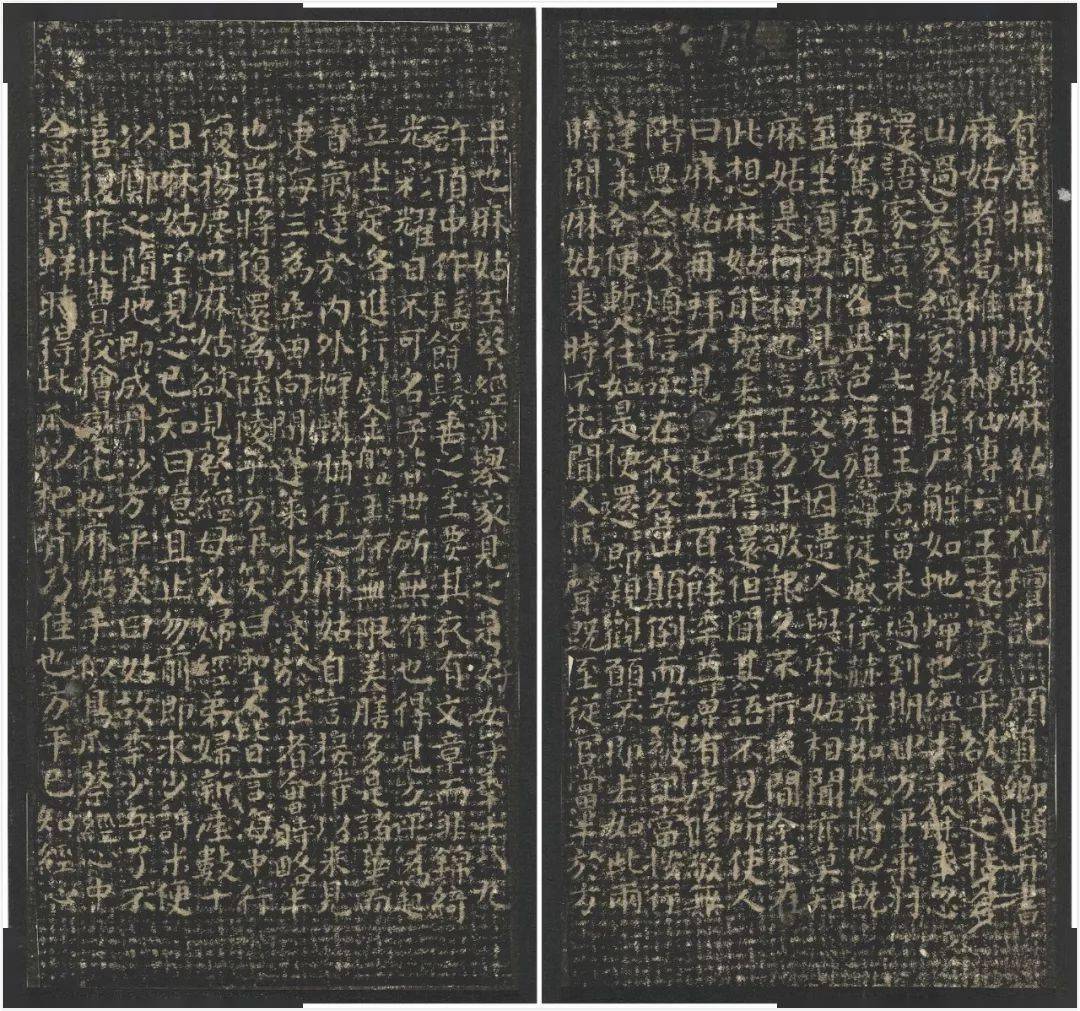 有唐撫州南城縣麻姑山仙壇記 顏真卿撰并書
麻姑者葛稚川神仙傳云王遠字方平欲東之括蒼
山過吳蔡經家教其尸解如蛇蟬也經去十餘年忽
還語家言七月七日王君當來過到期日方平乘羽
車駕五龍各異色旌旗導從威儀赫弈如大將也既
至坐須臾引見經父兄因遣人與麻姑相聞亦莫知
麻姑是何神也言王方平敬報久不行民間今來在
此想麻姑能暫來有頃信還但聞其語不見所使人
曰麻姑再拜不見忽已五百餘年尊卑有序修敬無
階思念久煩信承在彼登山顛倒而先被記當按行
蓬萊今便暫往如是便還即親觀願不即去如此兩
時間麻姑來時不先聞人馬聲既至從官當半於方
平也麻姑至蔡經亦舉家見之是好女子年十八九
許頂中作髻餘髮垂之至要其衣有文章而非錦綺
光彩耀日不可名字皆世所無有也得見方平為起
立坐定各進行廚金盤玉杯無限美膳多是諸華而
香氣達於內外擗麟脯行之麻姑自言接侍以來見
東海三為桑田向間蓬萊水乃淺於往者會時略半
也豈將復還為陸陵乎方平笑曰聖人皆言海中行
復揚塵也麻姑欲見蔡經母及婦經弟婦新產數十
日麻姑望見之已知曰噫且止勿前即求少許米便
以擲之墮地即成丹沙方平笑曰姑故年少吾了不
喜復作此曹狡獪變化也麻姑手似鳥爪蔡經心中
念言背蛘時得此爪以杷背乃佳也方平已知經心